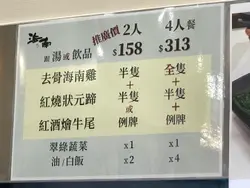 海南
推廣價 2人 4人餐
跟 湯或飲品 $158 $313
去骨海南雞 半隻 全隻
+ +
紅燒狀元蹄 半隻 半隻
或 +
紅酒燴牛尾 例牌 例牌
翠綠蔬菜 x1 x1
油/白飯 x2 x4